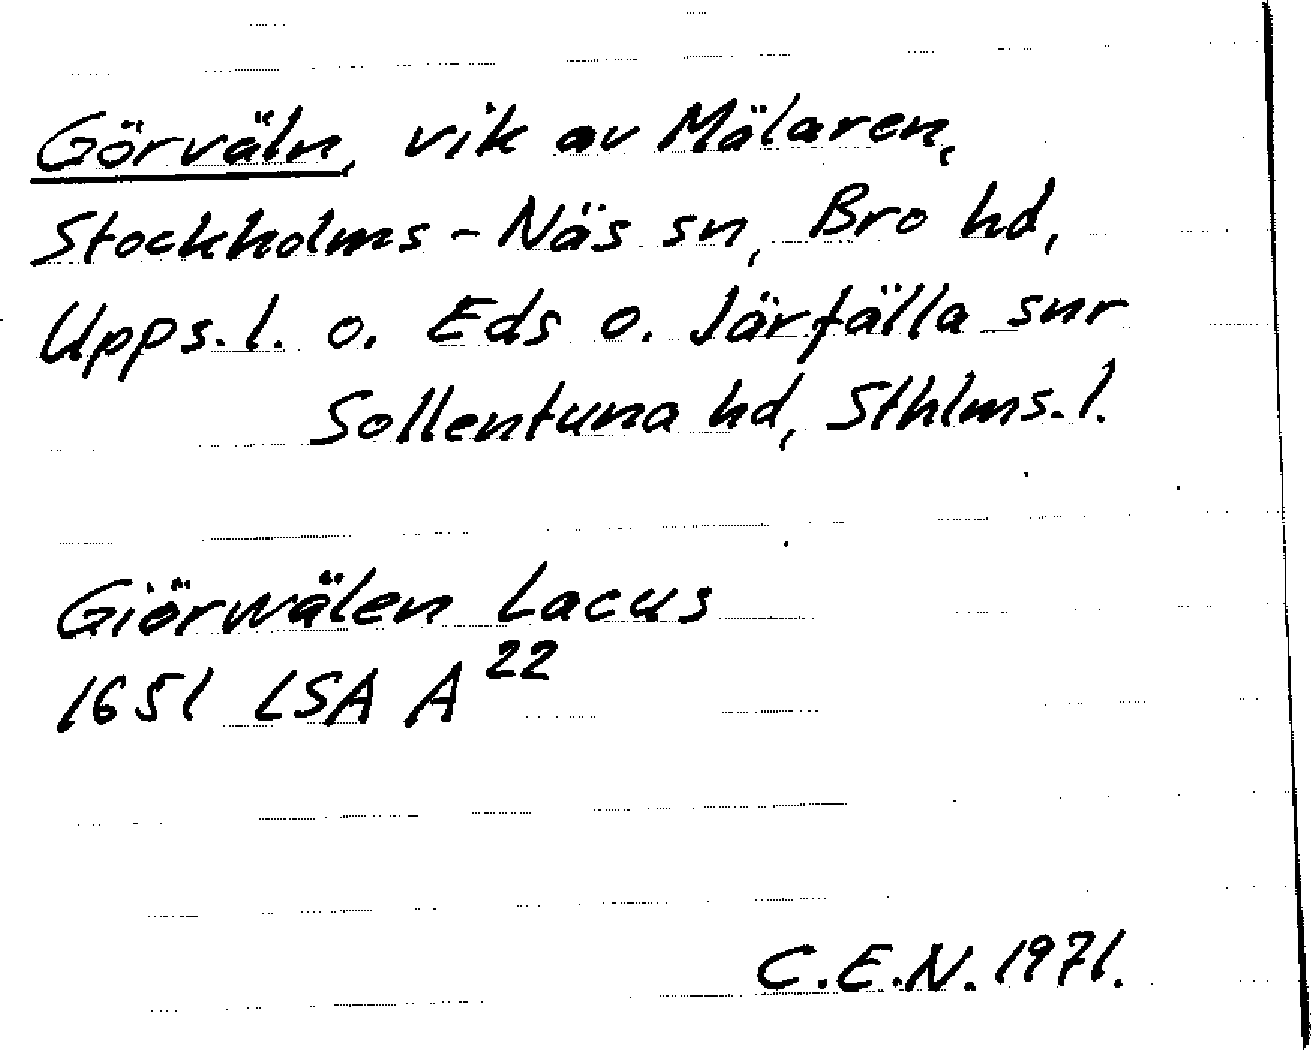 Görväln, vik av Mälaren,
Stockholms-Näs sn, Bro hd,
Upps.l. o. Eds o. Järfälla snr
Sollentuna hd, Sthlms.l.
Giörwälen Lacus
1651 LSA A 22
C.E.N. 1971.